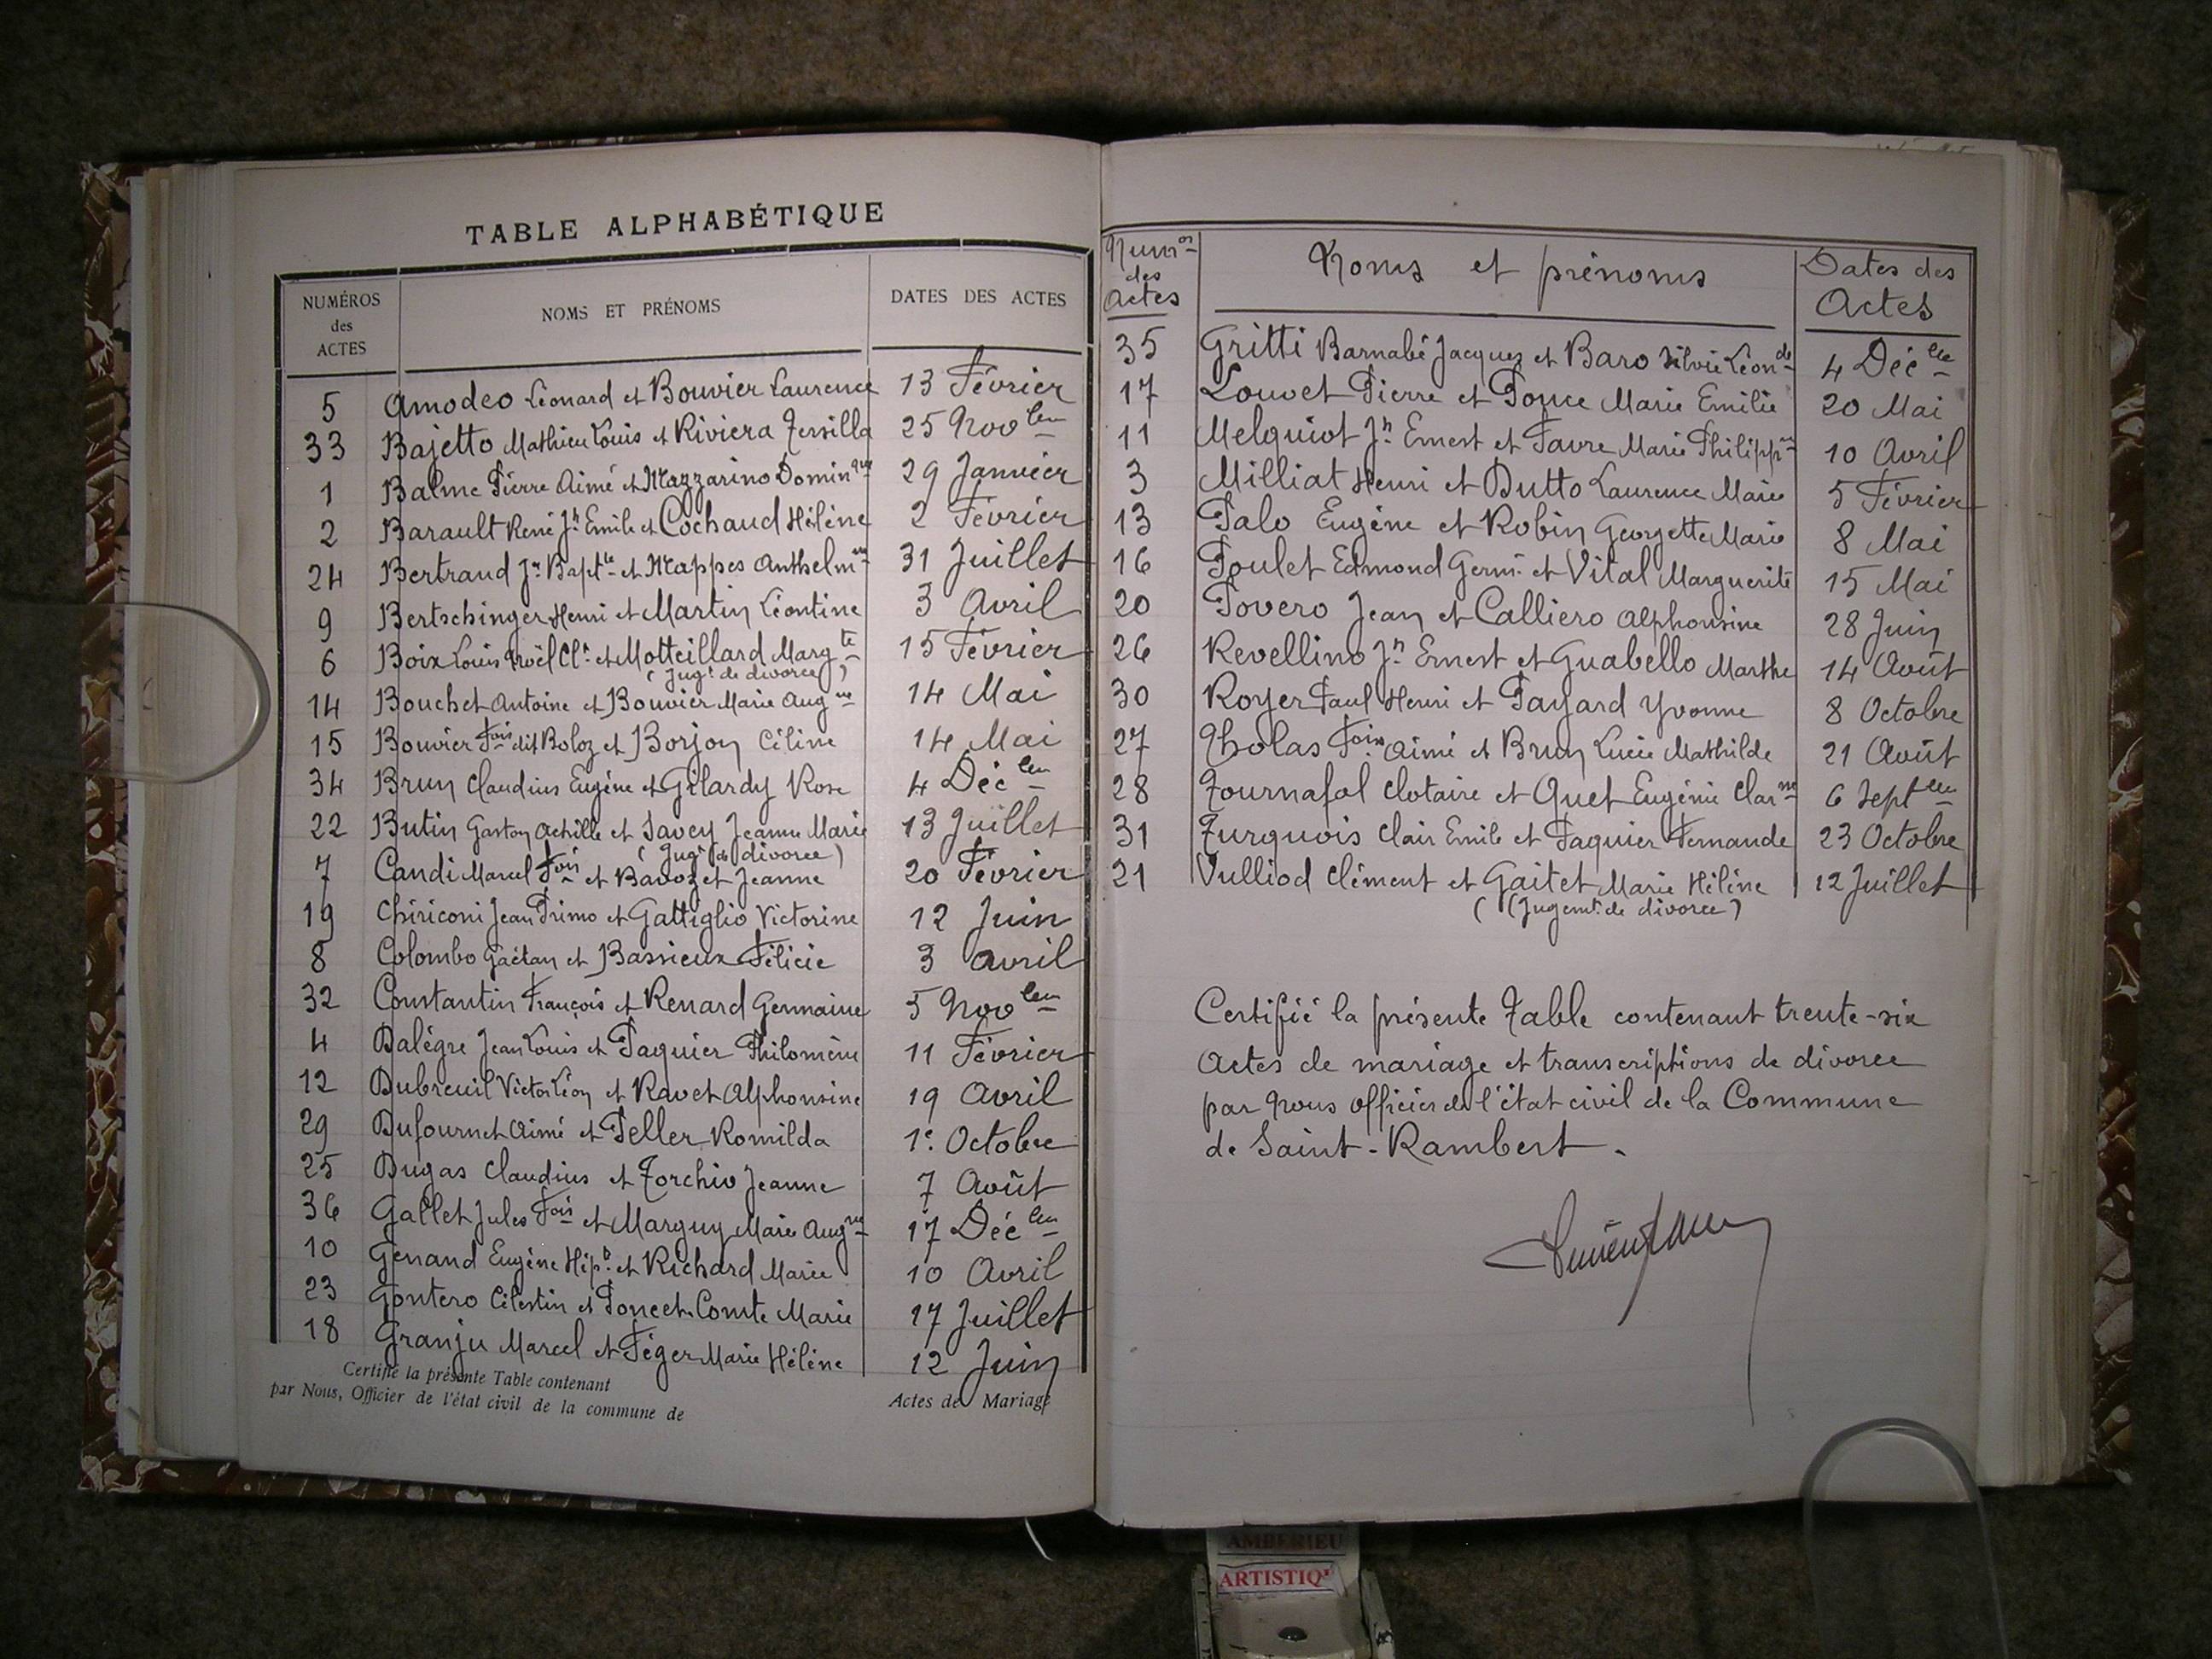 TABLE ALPHABÉTIQUE
NUMÉROS des ACTES NOMS ET PRÉNOMS DATES DES ACTES
5 Amodeo Léonard et Bouvier Laurence 13 Février
33 Bajetto Mathieu Louis et Riviera Tersilla 25 Novbre
1 Balme Pierre Aimé et Mazzarino Dominque 29 Janvier
2 Barault René Jh Emile et Cochaud Hélène 2 Février
24 Bertrand Jn Baptte et Mappes Anthelmne 31 Juillet
9 Bertschinger Henri et Martin Léontine 3 Avril
6 Boix Louis Noël Cl. et Motteillard Margte 15 Février
(Jugt de divorce)
14 Bouchet Antoine et Bouvier Marie Augne 14 Mai
15 Bouvier Fois dit Boloz et Borjon Céline 14 Mai
34 Brun Claudius Eugène et Gilardy Rose 4 Décbre
22 Butin Gaston Achille et Savey Jeanne Marie 13 Juillet
(Jugt de divorce)
7 Candi Marcel Fois et Bavozet Jeanne 20 Février
19 Chiriconi Jean Primo et Gattiglio Victorine 12 Juin
8 Colombo Gaétan et Bassieux Félicie 3 avril
32 Constantin François et Renard Germaine 5 Novbre
4 Dalégre Jean Louis et Paquier Philomène 11 Février
12 Dubreuil Victor Léon et Ravet Alphonsine 19 Avril
29 Dufournet Aimé et Peller Romilda 1e. Octobre
25 Dugas Claudius et Torchio Jeanne 7 Août
36 Gallet Jules Fois et Marguy Marie Augne 17 Décbre
10 Genand Eugène Hipte et Richard Marie 10 Avril
23 Gontero Célestin et Poncet-Comte Marie 17 Juillet
18 Granju Marcel et Féger Marie Hélène 12 Juin
Certifié la présente Table contenant Actes de Mariage
par Nous, Officier de l'état civil de la commune de
Numos des Actes Noms et prénoms Dates des Actes
35 Gritti Barnabé Jacques et Baro Silvie Léonde 4 Décbre
17 Louvet Pierre et Ponce Marie Emilie 20 Mai
11 Melquiot Jh Ernest et Favre Marie Philippne 10 Avril
3 Milliat Henri et Dutto Laurence Marie 5 Février
13 Palo Eugène et Robin Georgette Marie 8 Mai
16 Poulet Edmond Germ. et Vital Marguerite 15 Mai
20 Povero Jean et Calliero Alphonsine 28 Juin
26 Revellino Jh Ernest et Guabello Marthe 14 Août
30 Royer Paul Henri et Payard Yvonne 8 Octobre
27 Tholas Fois Aimé et Brun Lucie Mathilde 21 Août
28 Tournafol Clotaire et Quet Eugénie Clarne 6 Septbre
31 Turquois Clair Emile et Paquier Fernande 23 Octobre
21 Vulliod Clément et Gaitet Marie Hélène 12 Juillet
(Jugemt de divorce)
Certifié la présente Table contenant trente-six
Actes de mariage et transcriptions de divorce
par Nous officier de l'état civil de la Commune
de Saint-Rambert.
AMBERIEU
ARTISTIQ